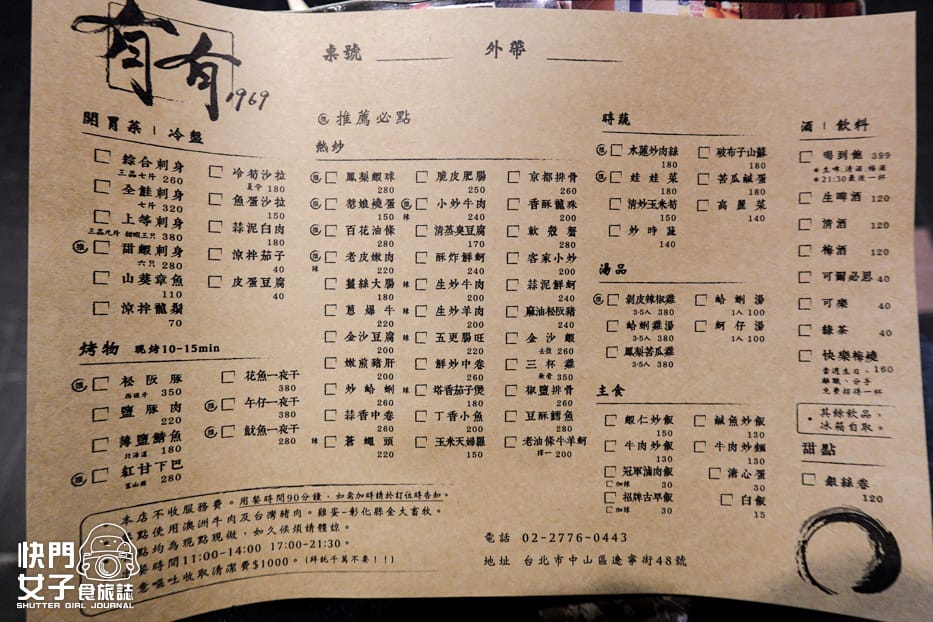 有有
1969
桌號
外帶
開胃菜|冷盤
綜合刺身
三品七片 260
全鮭刺身
七片 320
上等刺身
三品九片 甜蝦三只 380
推 甜蝦刺身
六只 280
山葵章魚
110
涼拌龍鬚
70
冷筍沙拉
夏令 180
魚蛋沙拉
150
蒜泥白肉
180
涼拌茄子
40
皮蛋豆腐
40
烤物 現烤10-15min
推 松阪豚
350
鹽豚肉
220
薄鹽鯖魚
北海道 180
推 紅甘下巴
富山縣 280
花魚一夜干
380
推 午仔一夜干
380
推 魷魚一夜干
280
推 推薦必點
熱炒
推 鳳梨蝦球
280
推 憨娘燒蛋
150
推 百花油條
280
推 辣 老皮嫩肉
220
薑絲大腸
180
蔥爆牛
220
金沙豆腐
200
嫩煎豬肝
200
炒蛤蜊
260
蒜香中卷
260
辣 蒼蠅頭
220
脆皮肥腸
250
推 辣 小炒牛肉
240
清蒸臭豆腐
170
酥炸鮮蚵
240
辣 生炒牛肉
200
辣 生炒羊肉
200
辣 五更腸旺
220
鮮炒中卷
260
辣 塔香茄子煲
180
丁香小魚
200
玉米天婦羅
150
京都排骨
260
香酥龍珠
200
軟殼蟹
280
客家小炒
200
蒜泥鮮蚵
240
麻油松阪豬
240
金沙蝦
去殼 260
三杯雞
無骨 350
椒鹽排骨
260
豆酥鱈魚
280
老油條牛羊蚵
擇一 200
時蔬
推 水蓮炒肉絲
180
推 娃娃菜
180
清炒玉米筍
150
炒時蔬
140
破布子山蘇
180
苦瓜鹹蛋
180
高麗菜
140
湯品
推 剝皮辣椒雞
3-5人 380
蛤蜊雞湯
3-5人 380
鳳梨苦瓜雞
3-5人 380
蛤蜊湯
1人 100
蚵仔湯
1人 100
主食
蝦仁炒飯
150
牛肉炒飯
130
冠軍滷肉飯
加辣 30
招牌古早飯
加辣 30
鹹魚炒飯
130
牛肉炒麵
130
溏心蛋
30
白飯
15
酒|飲料
喝到飽 399
*生啤.清酒.梅酒
*21:30最後一杯
生啤酒 120
清酒 120
梅酒 120
可爾必思 40
可樂 40
綠茶 40
快樂梅燒 160
當週生日、
離職、分手
免費招待一杯
• 其餘飲品，
冰箱自取。
甜點
銀絲卷
120
本店不收服務費。用餐時間90分鐘，如需加時請於訂位時告知。
點使用澳洲牛肉及台灣豬肉。雞蛋-彰化縣全大畜牧。
點均為現點現做，如久候煩請體諒。
時間11:00-14:00 17:00-21:30。
意嘔吐收取清潔費$1000。(拜託千萬不要！！)
電話 02-2776-0443
地址 台北市中山區遼寧街48號
快門
女子食旅誌
SHUTTER GIRL JOURNAL